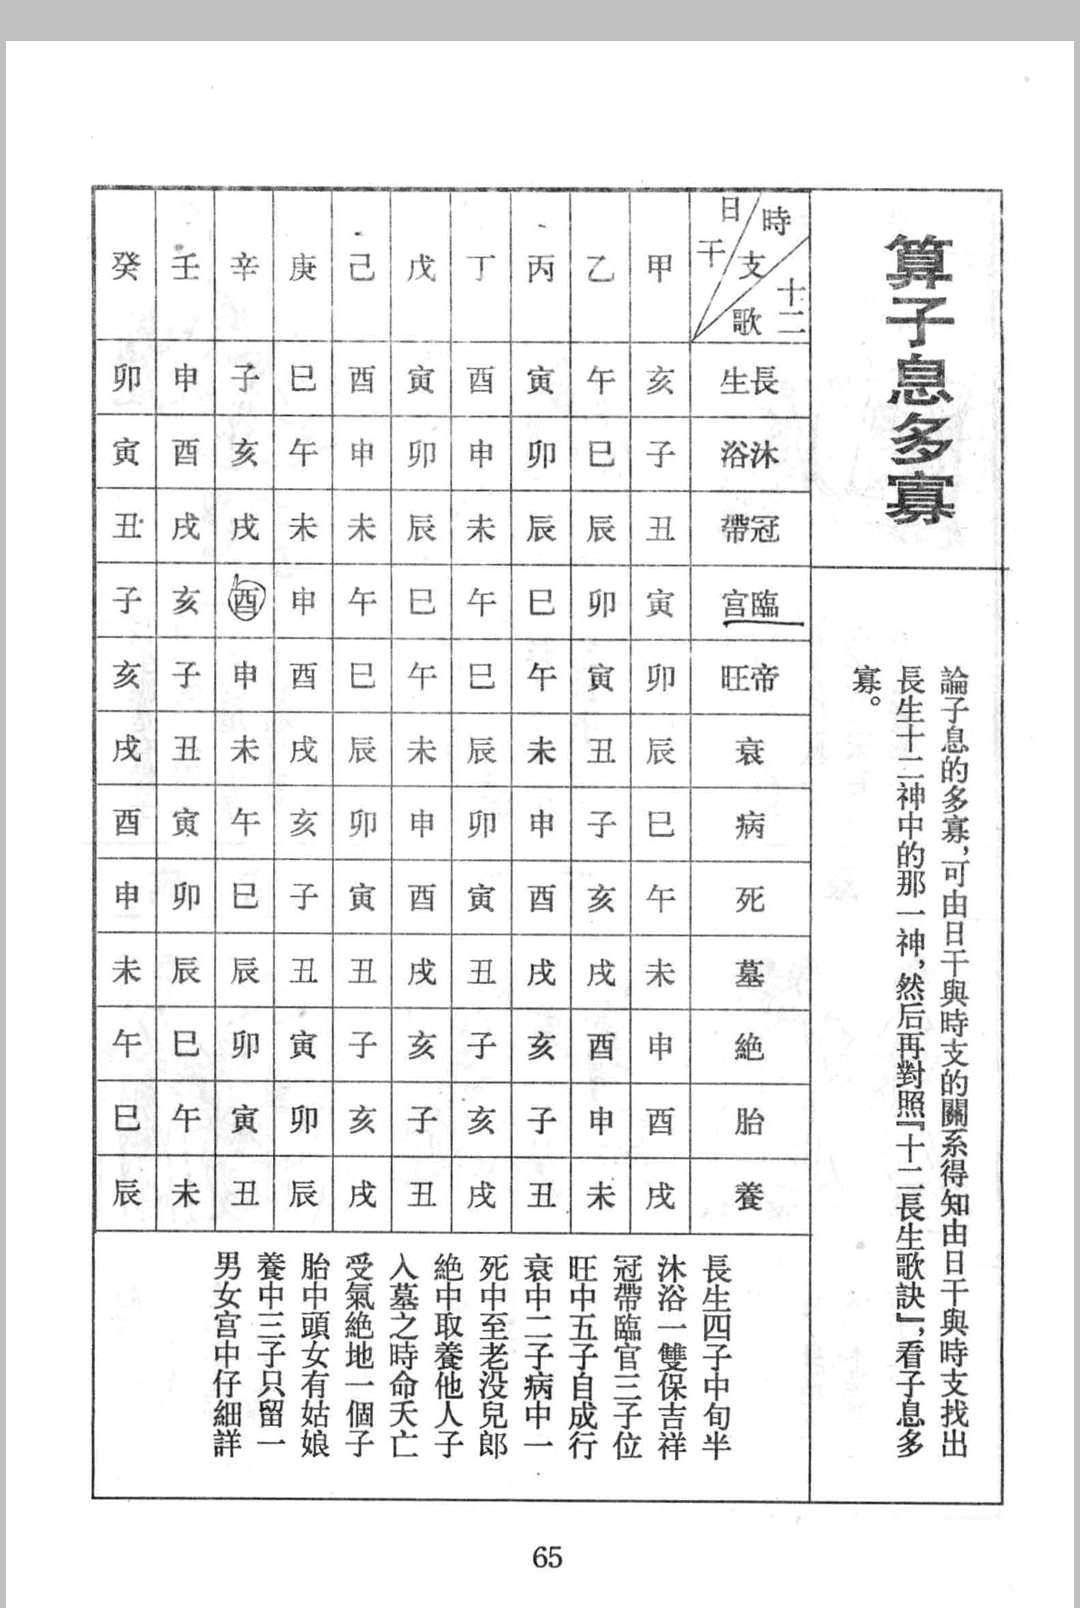 算子息多寡
論子息的多寡，可由日干與時支的關系得知由日干與時支找出
長生十二神中的那一神，然后再對照『十二長生歌訣』，看子息多
寡。
日干 時支 十二歌
甲 乙 丙 丁 戊 己 庚 辛 壬 癸
長生 亥 午 寅 酉 寅 酉 巳 子 申 卯
沐浴 子 巳 卯 申 卯 申 午 亥 酉 寅
冠帶 丑 辰 辰 未 辰 未 未 戌 戌 丑
臨宮 寅 卯 巳 午 巳 午 申 酉 亥 子
帝旺 卯 寅 午 巳 午 巳 酉 申 子 亥
衰 辰 丑 未 辰 未 辰 戌 未 丑 戌
病 巳 子 申 卯 申 卯 亥 午 寅 酉
死 午 亥 酉 寅 酉 寅 子 巳 卯 申
墓 未 戌 戌 丑 戌 丑 丑 辰 辰 未
絶 申 酉 亥 子 亥 子 寅 卯 巳 午
胎 酉 申 子 亥 子 亥 卯 寅 午 巳
養 戌 未 丑 戌 丑 戌 辰 丑 未 辰
長生四子中旬半
沐浴一雙保吉祥
冠帶臨官三子位
旺中五子自成行
衰中二子病中一
死中至老没兒郎
絶中取養他人子
入墓之時命夭亡
受氣絶地一個子
胎中頭女有姑娘
養中三子只留一
男女宮中仔細詳
65